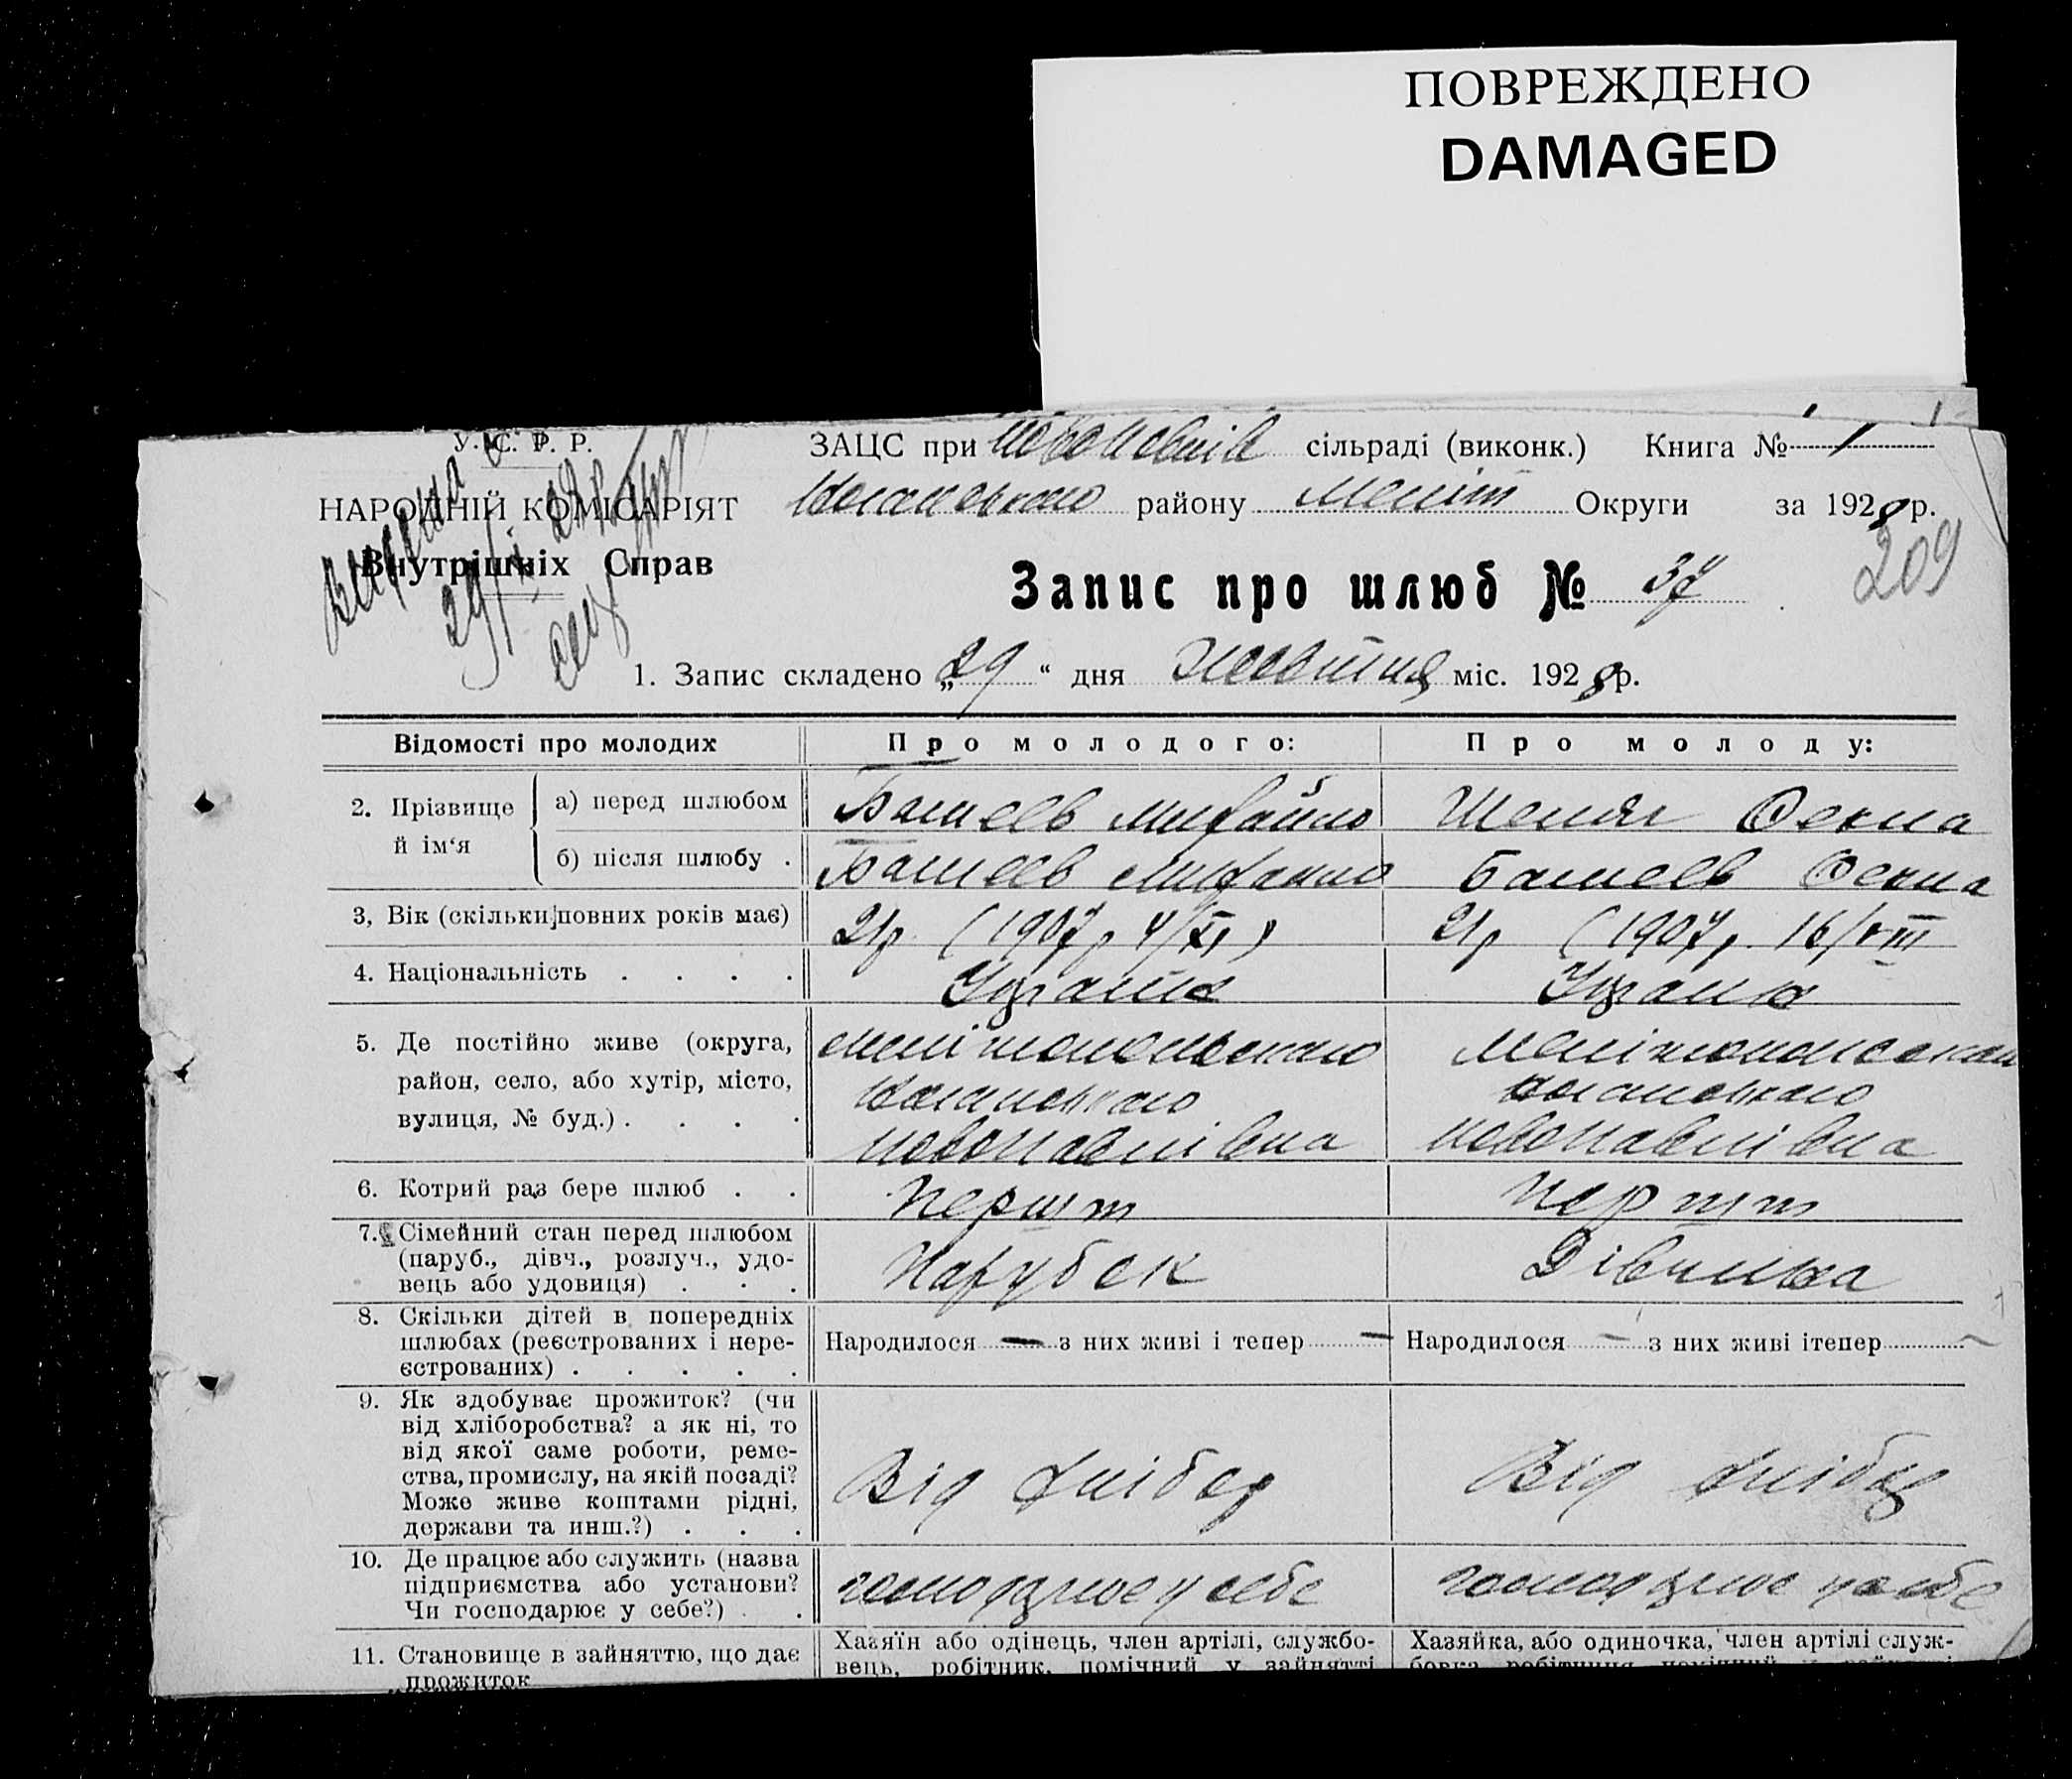 ПОВРЕЖДЕНО
DAMAGED
У. С. Р. Р.
НАРОДНІЙ КОМІСАРІЯТ
Внутрішніх Справ
ЗАЦС при сільраді (виконк.) Книга № 1
району Меліт Округи за 1928 р.
209
Запис про шлюб № 37
1. Запис складено „29“ дня Жовтня міс. 1928 р.
Відомості про молодих Про молодого: Про молоду:
2. Прізвище й ім‘я
а) перед шлюбом Башеєв Михайло Шеляг Фекла
б) після шлюбу . Башеєв Михайло Башеєв Фекла
3, Вік (скільки повних років має) 21 р. (1907 р 4/XI) 21 р (1907 р. 16/VIII
4. Національність . . . .
5. Де постійно живе (округа,
район, село, або хутір, місто,
вулиця, № буд.) . . . .
Мелітопольського
Новопавлівка
Новопавлівка
6. Котрий раз бере шлюб . . Перший Перший
7. Сімейний стан перед шлюбом
(паруб., дівч., розлуч., удо-
вець або удовиця) . . .
Парубок Дівчина
8. Скільки дітей в попередніх
шлюбах (реєстрованих і нере-
єстрованих) . . . . .
Народилося — з них живі і тепер — Народилося — з них живі ітепер —
9. Як здобуває прожиток? (чи
від хліборобства? а як ні, то
від якої саме роботи, реме-
ства, промислу, на якій посаді?
Може живе коштами рідні,
держави та инш.?) . . .
Від хлібор Від хлібор
10. Де працює або служить (назва
підприємства або установи?
Чи господарює у себе?) . .
господарює у себе господарює у себе
11. Становище в зайняттю, що дає
прожиток
Хазяїн або одінець, член артілі, службо-
вець, робітник, помічний у зайнятті
Хазяйка, або одиночка, член артілі служ-